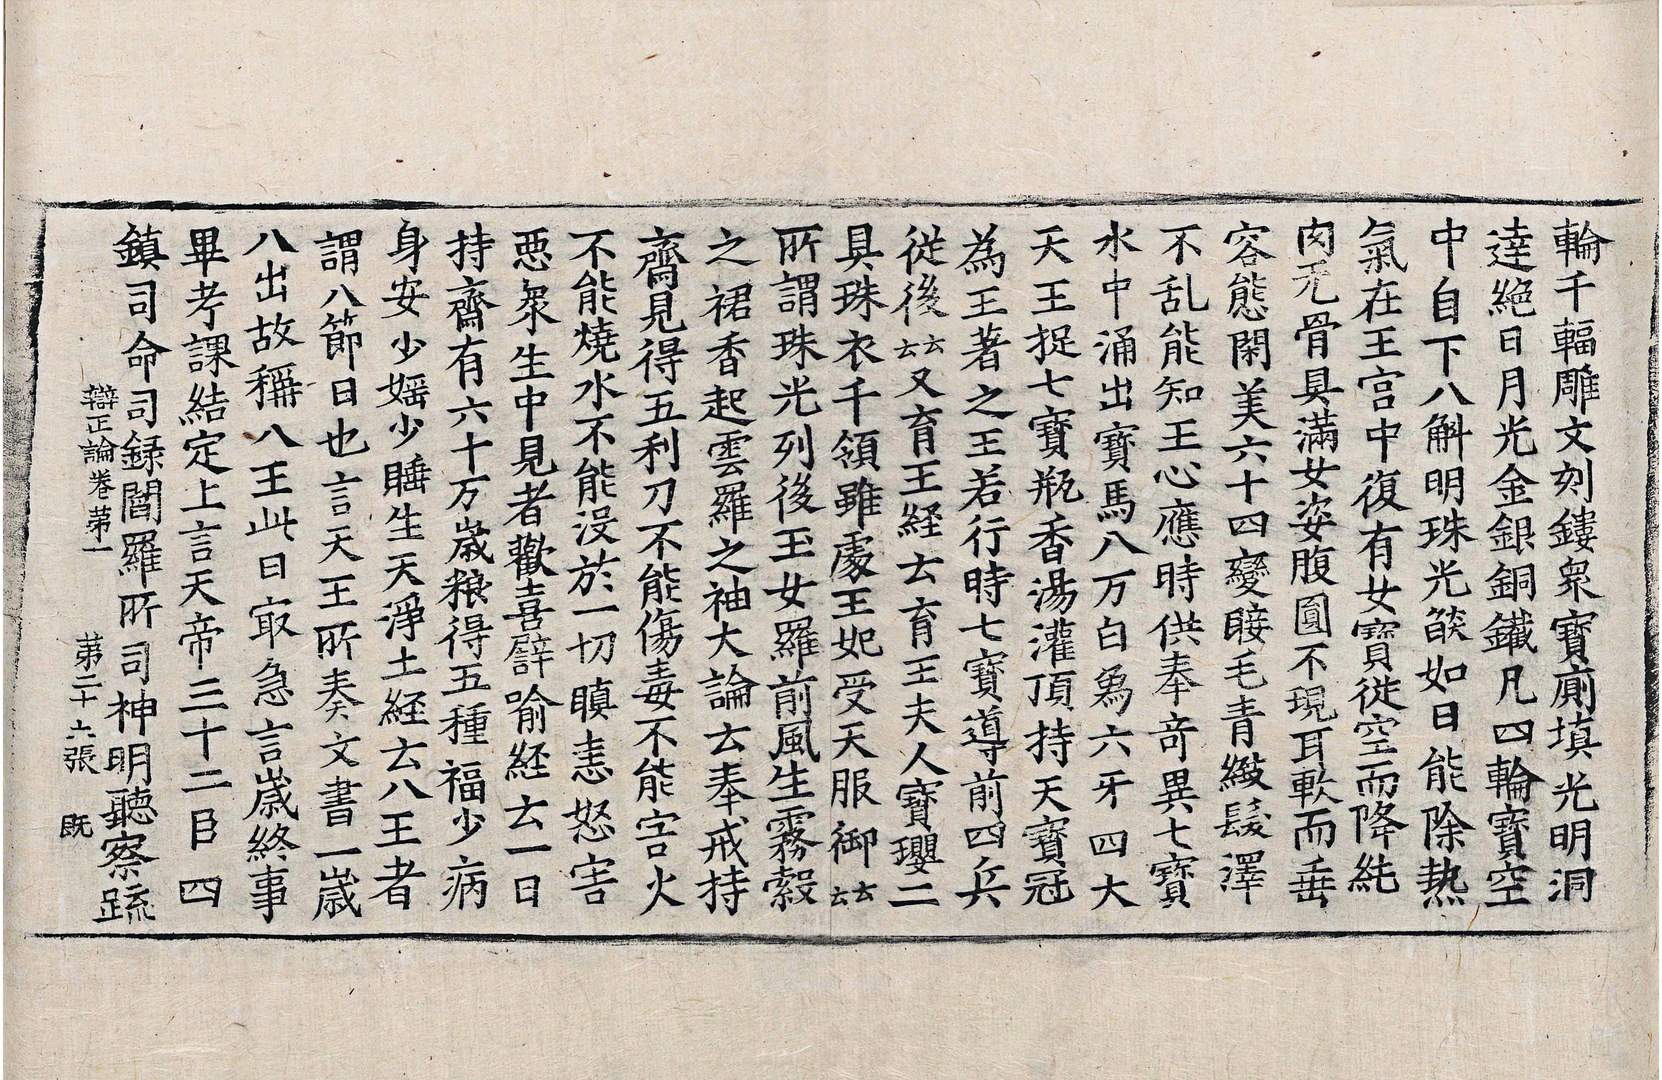 輪千輻雕文刻鏤衆寶廁填光明洞
達絕日月光金銀銅鐵凡四輪寶空
中自下八斛明珠光燄如日能除熱
氣在王宫中復有女寶從空而降純
肉无骨具滿女姿腹圓不現耳軟而垂
容態閑美六十四變睫毛青緻髮澤
不乱能知王心應時供奉奇異七寶
水中涌出寶馬八万白象六牙四大
天王捉七寶瓶香湯灌頂持天寶冠
為王著之王若行時七寶導前四兵
從後云云又育王經云育王夫人寶瓔二
具珠衣千領雖處王妃受天服御云云
所謂珠光列後玉女羅前風生霧縠
之裙香起雲羅之袖大論云奉戒持
齋見得五利刀不能傷毒不能害火
不能燒水不能沒於一切瞋恚怒害
惡衆生中見者歡喜譬喻經云一日
持齋有六十万歲粮得五種福少病
身安少婬少睡生天淨土經云八王者
謂八節日也言天王所奏文書一歲
八出故稱八王此日㝡急言歲終事
畢考課結定上言天帝三十二臣四
鎮司命司録閻羅所司神明聽察疏
辯正論卷苐一　苐二十六張　既